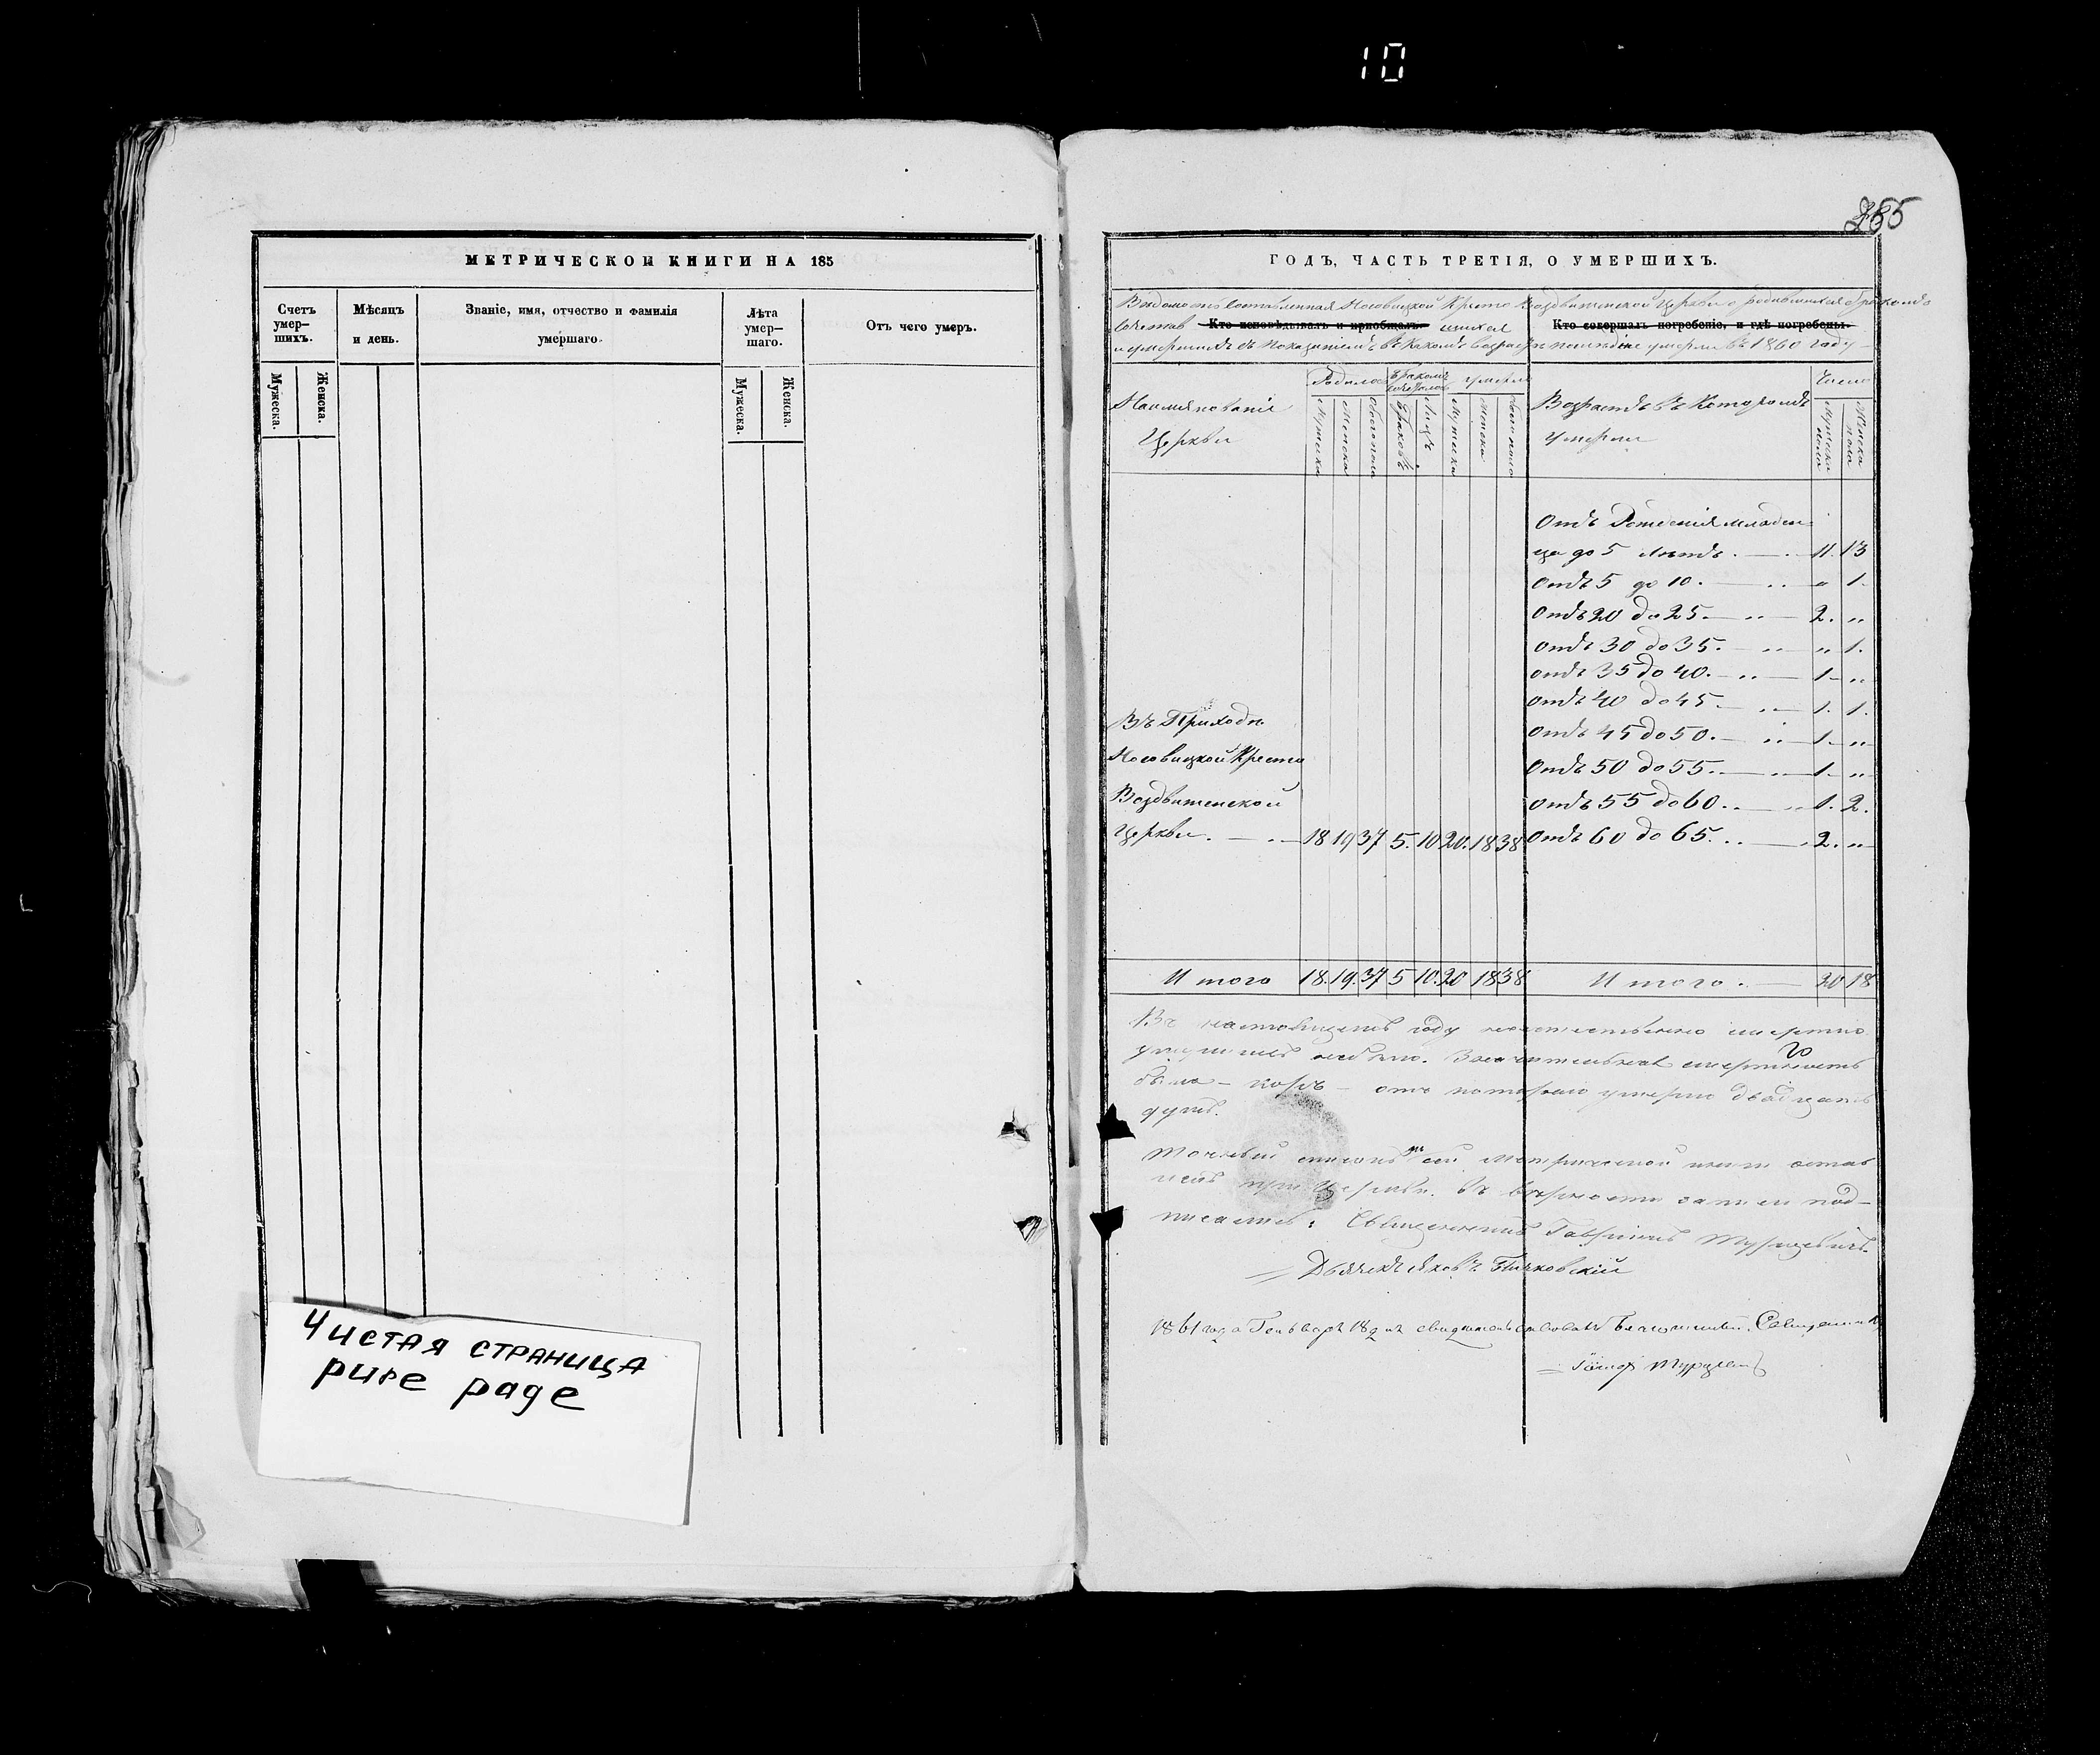 10
МЕТРИЧЕСКОЙ КНИГИ НА 185
Счетъ умер-шихъ.
Мѣсяцъ и день.
Званіе, имя, отчество и фамилія умершаго.
Лѣта умер-шаго.
Отъ чего умеръ.
Мужеска.
Женска.
Мужеска.
Женска.
Чистая страница
pure page
265
ГОДЪ, ЧАСТЬ ТРЕТІЯ, О УМЕРШИХЪ.
Вѣдомость Составленная Носовицкой Кресто Воздвиженской Церкви о родившихся бракомъ
сочетав Кто исповѣдывалъ и пріобщалъ. шихся Кто совершалъ погребеніе, и гдѣ погребены.
и умершихъ съ показаніемъ въ какомъ возрастѣ послѣдніе умерли въ 1860 году
Наименованіе
Церкви
Родилось
Бракомъ сочеталось
умерло
Мужеска
Женска
Обоего пола
Браковъ
Лицъ
Мужеска
Женска
Обоего пола
Возрастъ въ Которомъ
Умерли
Число
Мужеска пола
Женска пола
Отъ Рожденія младен
ца до 5 лѣтъ. 11. 13
Отъ 5 до 10. „ 1.
Отъ 20 до 25. 2. „
Отъ 30 до 35. „ 1.
Отъ 35 до 40. 1 „
Отъ 40 до 45 1. 1.
Отъ 45 до 50. 1 „
Отъ 50 до 55. 1 „
Отъ 55 до 60. 1. 2.
Отъ 60 до 65. 2. „
Въ Приходѣ
Носовицкой Кресто
Воздвиженской
Церкви. 18 19 37 5. 10 20. 18 38
Итого 18. 19. 37 5 10. 20 18 38
Итого. 20 18
Въ настоящемъ году неестественно смертію
умершихъ не было. Значительная смертность
была – корь – отъ котораго умерло двадцать
душъ.
Точный списокъ сей метрической книги остав
ленъ при Церкви. Въ вѣрности записи под-
писались: Священникъ Гавріилъ Турцевичъ.
Дьячекъ Яковъ Бычковскій
1861 года Генваря 18 дня свидѣтельствовалъ Благочинный Священникъ